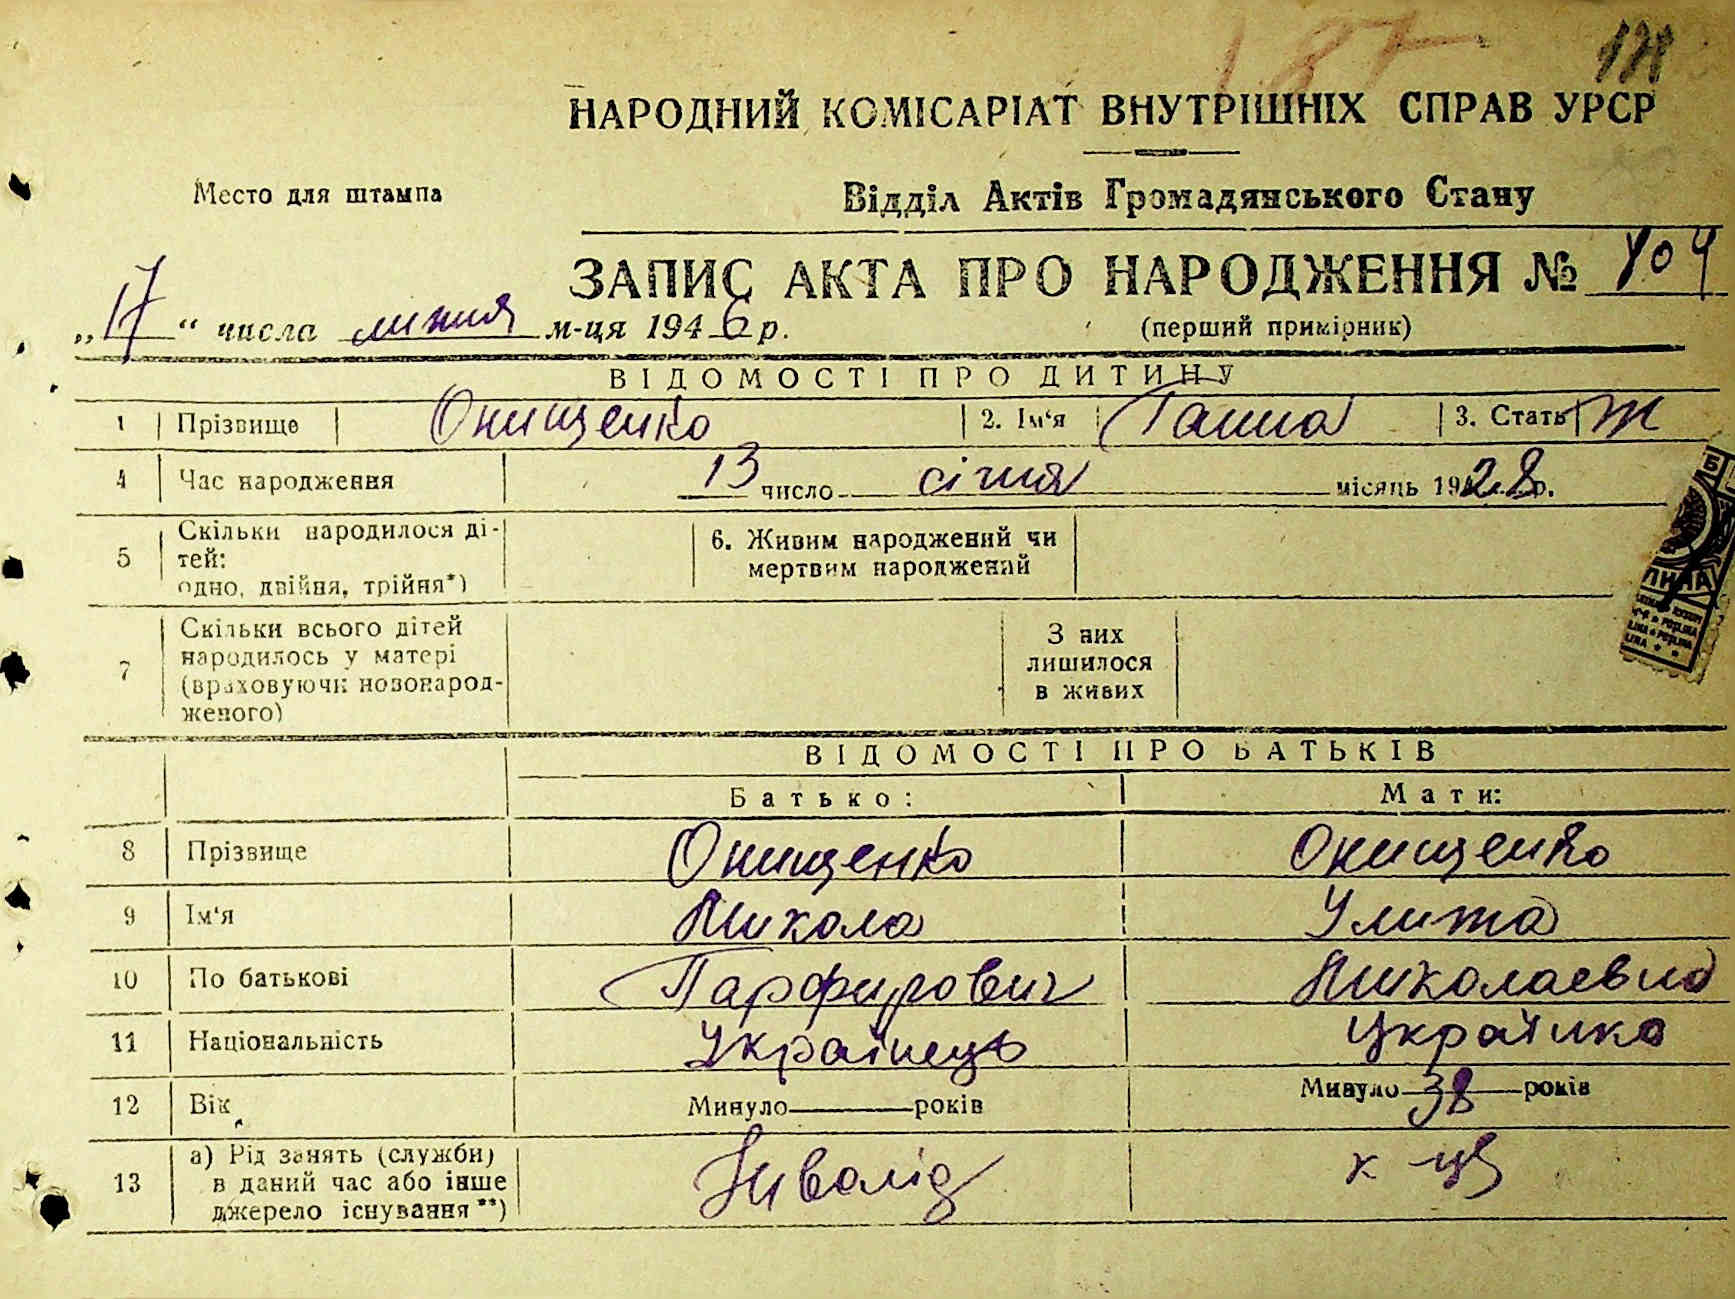 187
НАРОДНИЙ КОМІСАРІАТ ВНУТРІШНІХ СПРАВ УРСР
Место для штампа
Відділ Актів Громадянського Стану
ЗАПИС АКТА ПРО НАРОДЖЕННЯ № 104
„17“ числа липня м-ця 1946 р.
(перший примірник)
ВІДОМОСТІ ПРО ДИТИНУ
1 Прізвище Онищенко 2. Ім‘я Ганна 3. Стать Ж
4 Час народження 13 число січня місяць 1928 р.
5 Скільки народилося ді-
тей:
одно, двійня, трійня*)
6. Живим народжений чи
мертвим народжений
7 Скільки всього дітей
народилось у матері
(враховуючи новонарод-
женого)
З них
лишилося
в живих
ВІДОМОСТІ ПРО БАТЬКІВ
Батько: Мати:
8 Прізвище Онищенко Онищенко
9 Ім‘я Микола Улита
10 По батькові Парфирович Миколаевна
11 Національність Українець Українка
12 Вік Минуло років Минуло 38 років
13 а) Рід занять (служби)
в даний час або інше
джерело існування**)
Інвалід